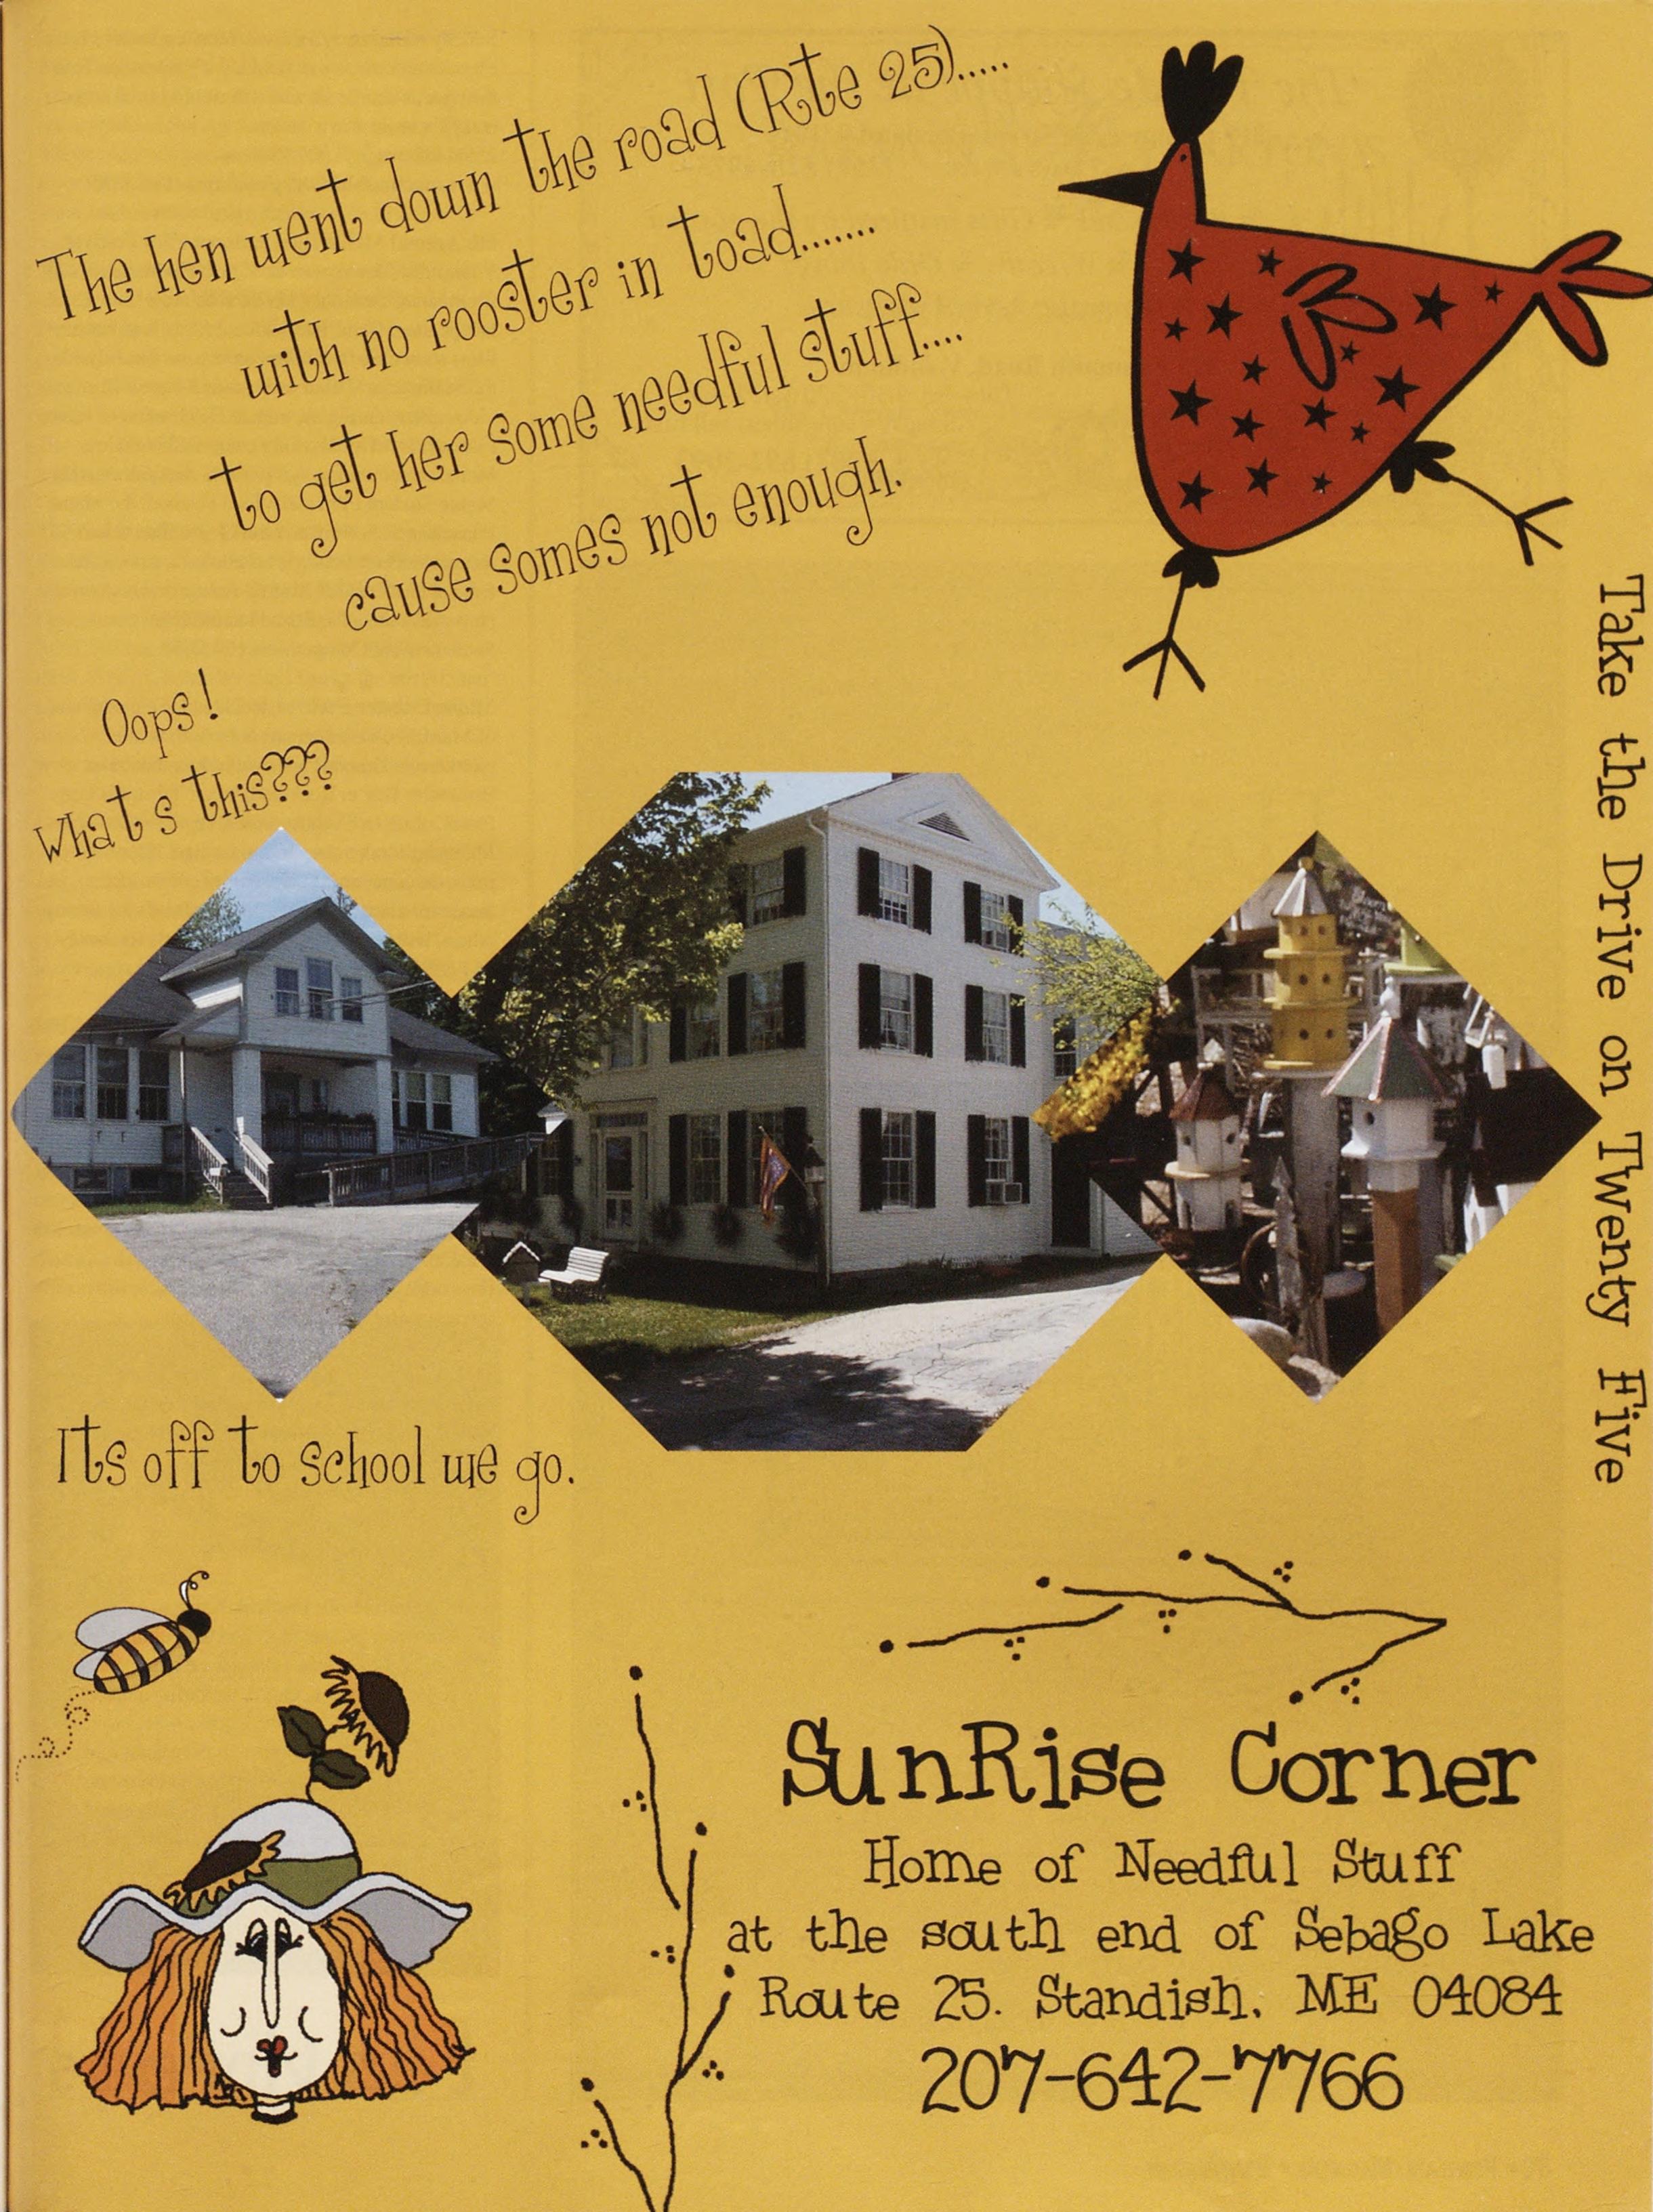 The hen went down the road (Rte 25).....
with no rooster in toad.......
to get her some needful stuff....
cause somes not enough.
Oops!
What s this???
Take the Drive on Twenty Five
Its off to school we go.
SunRise Corner
Home of Needful Stuff
at the south end of Sebago Lake
Route 25. Standish, ME 04084
207-642-7766